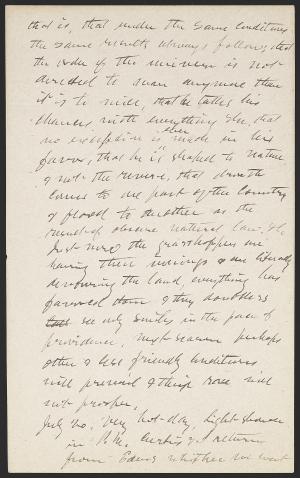 that is, that under the same conditions
the same results always follow, that
the order of the universe is not
devoted to man anymore than
it is to mice, that he takes his
chances with everything else, that
no exception is ever made in his
favor, that he is shaped to nature
& not the reverse, that drouth
comes to one part of the country
& flood to another as the
result of obscure natural law. &c
Just now the grasshoppers are
having their innings & are literally
devouring the land, everything has
favored them & they doubtless
see only smiles in the face of
providence, next season perhaps
other & less friendly conditions
will prevail & their race will
not prosper.
July 20. Very hot day, light shower
in P.M. Curtis & I return
from Edens whither we went